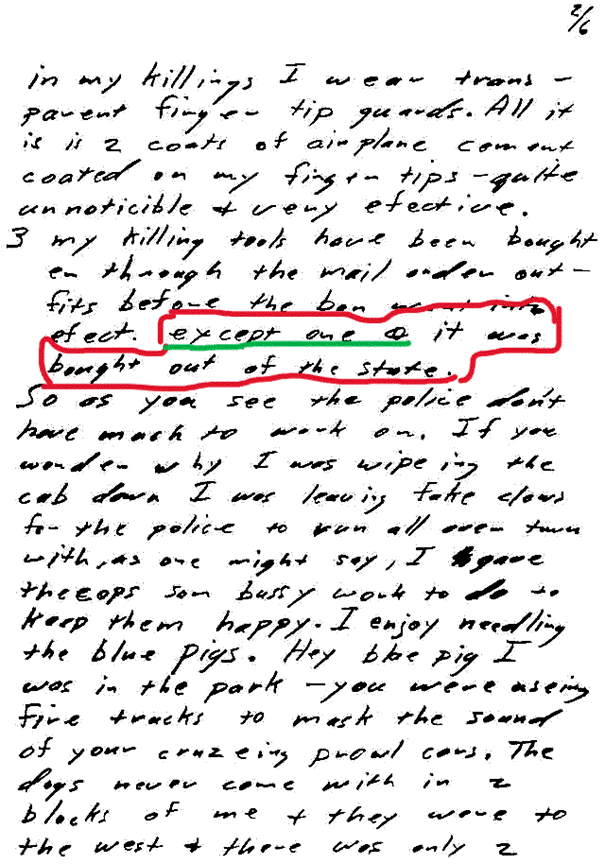 2/6
in my killings I wear trans -
parent finger tip guards. All it
is is 2 coats of airplane cement
coated on my finger tips - quite
unnoticible + very efective.
3 my killing tools have been bought
en through the mail order out-
fits before the ban went into
efect. except one & it was
bought out of the state.
So as you see the police don't
have much to work on. If you
wonder why I was wipeing the
cab down I was leaving fake clews
for the police to run all over town
with, as one might say, I gave
the cops som bussy work to do to
keep them happy. I enjoy needling
the blue pigs. Hey blue pig I
was in the park - you were useing
fire trucks to mask the sound
of your cruzeing prowl cars. The
dogs never came with in 2
blocks of me + they were to
the west + there was only 2